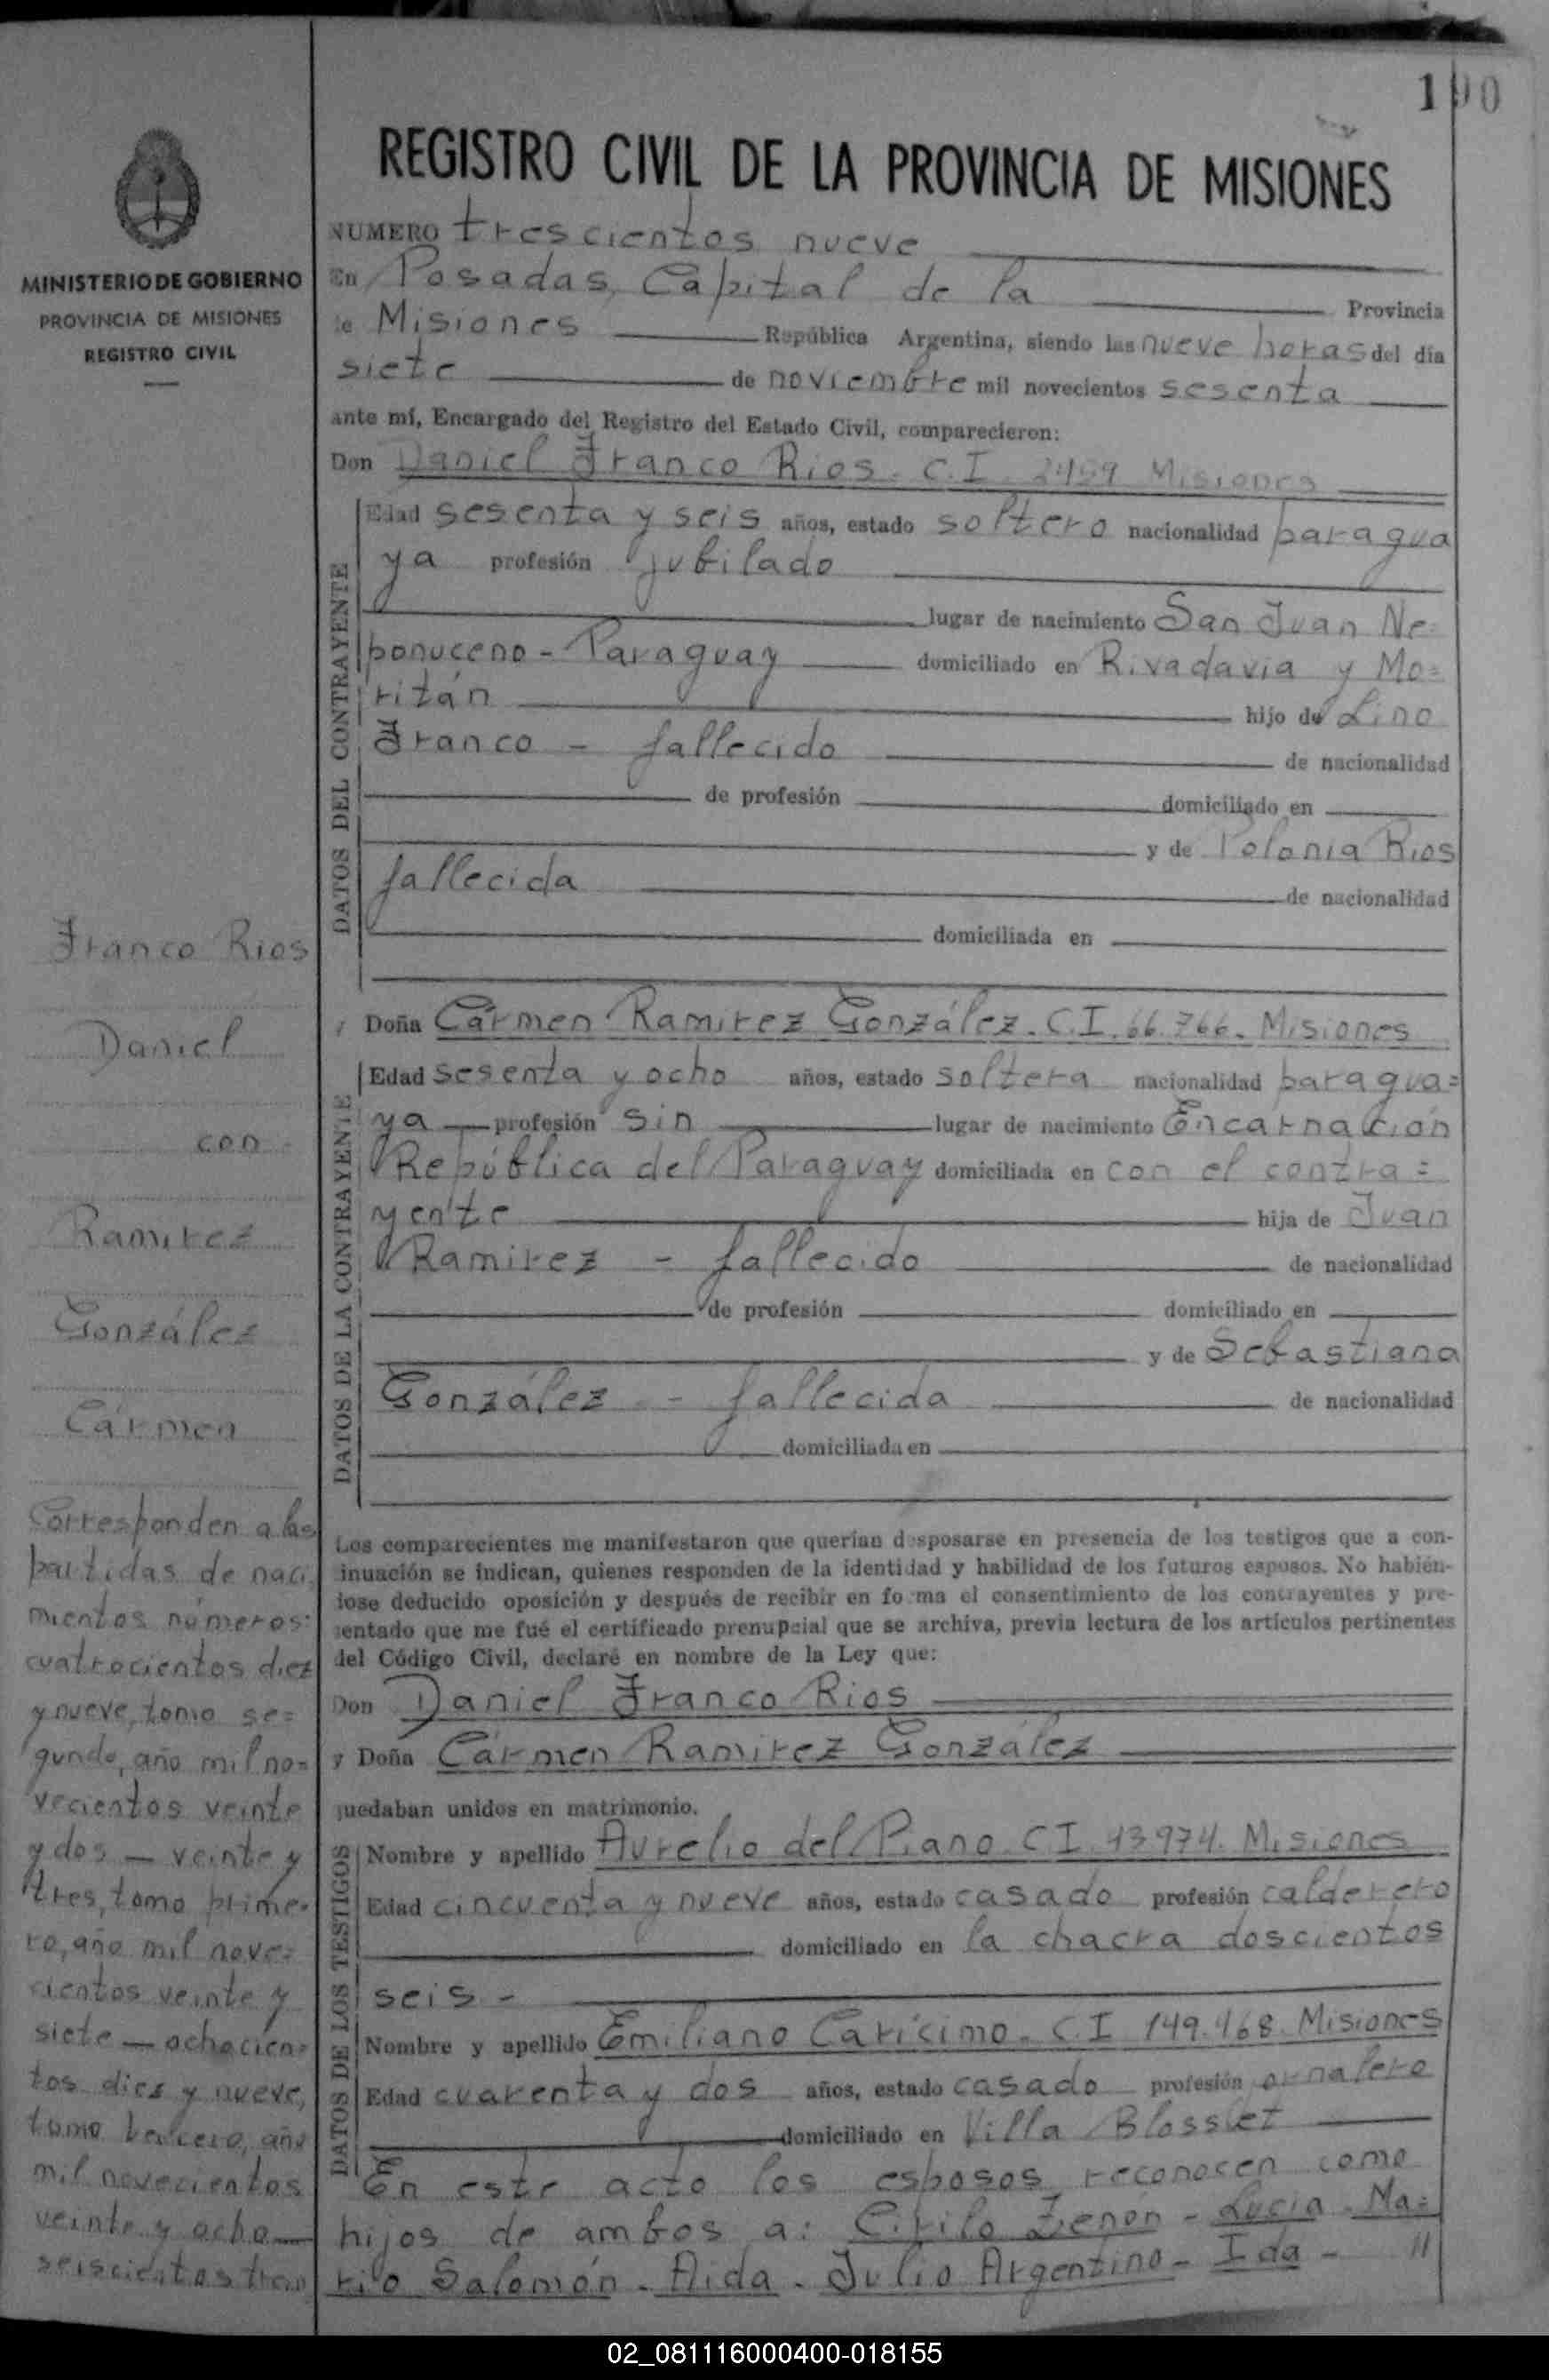 190
REGISTRO CIVIL DE LA PROVINCIA DE MISIONES
MINISTERIO DE GOBIERNO
PROVINCIA DE MISIONES
REGISTRO CIVIL
NUMERO trescientos nueve
En Posadas, Capital de la Provincia
de Misiones República Argentina, siendo las nueve horas del día
siete de noviembre mil novecientos sesenta
ante mí, Encargado del Registro del Estado Civil, comparecieron:
Don Daniel Franco Rios. C.I. 2459 Misiones
DATOS DEL CONTRAYENTE
Edad sesenta y seis años, estado soltero nacionalidad paragua
ya profesión jubilado
lugar de nacimiento San Juan Ne=
ponuceno - Paraguay domiciliado en Rivadavia y Mo=
ritán hijo de Lino
Franco - fallecido de nacionalidad
de profesión domiciliado en
y de Polonia Rios
fallecida de nacionalidad
domiciliada en
y Doña Cármen Ramirez González. C.I. 66.766. Misiones
DATOS DE LA CONTRAYENTE
Edad sesenta y ocho años, estado soltera nacionalidad paragua=
ya profesión sin lugar de nacimiento Encarnación
República del Paraguay domiciliada en con el contra=
yente hija de Juan
Ramirez - fallecido de nacionalidad
de profesión domiciliado en
y de Sebastiana
González - fallecida de nacionalidad
domiciliada en
Los comparecientes me manifestaron que querían desposarse en presencia de los testigos que a con-
tinuación se indican, quienes responden de la identidad y habilidad de los futuros esposos. No habién-
dose deducido oposición y después de recibir en forma el consentimiento de los contrayentes y pre-
sentado que me fué el certificado prenupcial que se archiva, previa lectura de los artículos pertinentes
del Código Civil, declaré en nombre de la Ley que:
Don Daniel Franco Rios
y Doña Cármen Ramirez González
quedaban unidos en matrimonio.
DATOS DE LOS TESTIGOS
Nombre y apellido Aurelio del Piano C.I. 43974. Misiones
Edad cincuenta y nueve años, estado casado profesión calderero
domiciliado en la chacra doscientos
seis -
Nombre y apellido Emiliano Carícimo. C.I 149.468. Misiones
Edad cuarenta y dos años, estado casado profesión jornalero
domiciliado en Villa Blosslet
En este acto los esposos reconocen como
hijos de ambos a: Cirilo Zenón - Lucia - Ma=
rio Salomón - Aida - Julio Argentino - Ida - //
Franco Rios
Daniel
con
Ramirez
González
Cármen
Corresponden a las
partidas de naci
mientos números:
cuatrocientos diez
y nueve, tomo se=
gundo, año mil no=
vecientos veinte
y dos — veinte y
tres, tomo prime=
ro, año mil nove=
cientos veinte y
siete — ochocien=
tos diez y nueve,
tomo tercero, año
mil novecientos
veinte y ocho —
seiscientos
02_081116000400-018155